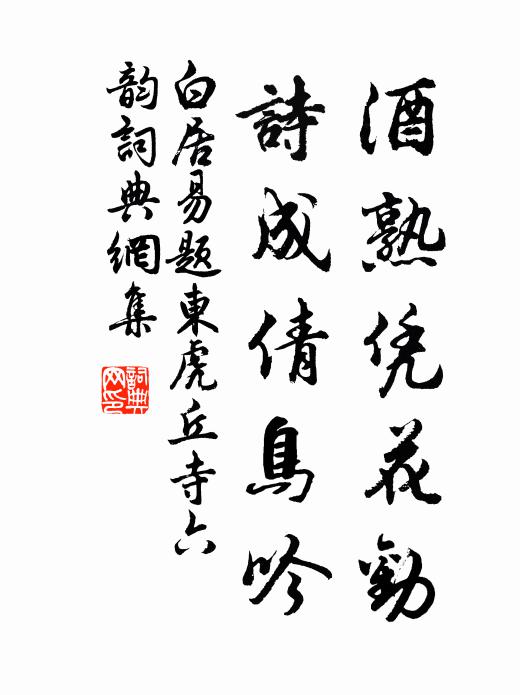 酒熟凭花勸
詩成倩鳥吟
白居易题東虎丘寺六
韵詞典網集
詞典网印